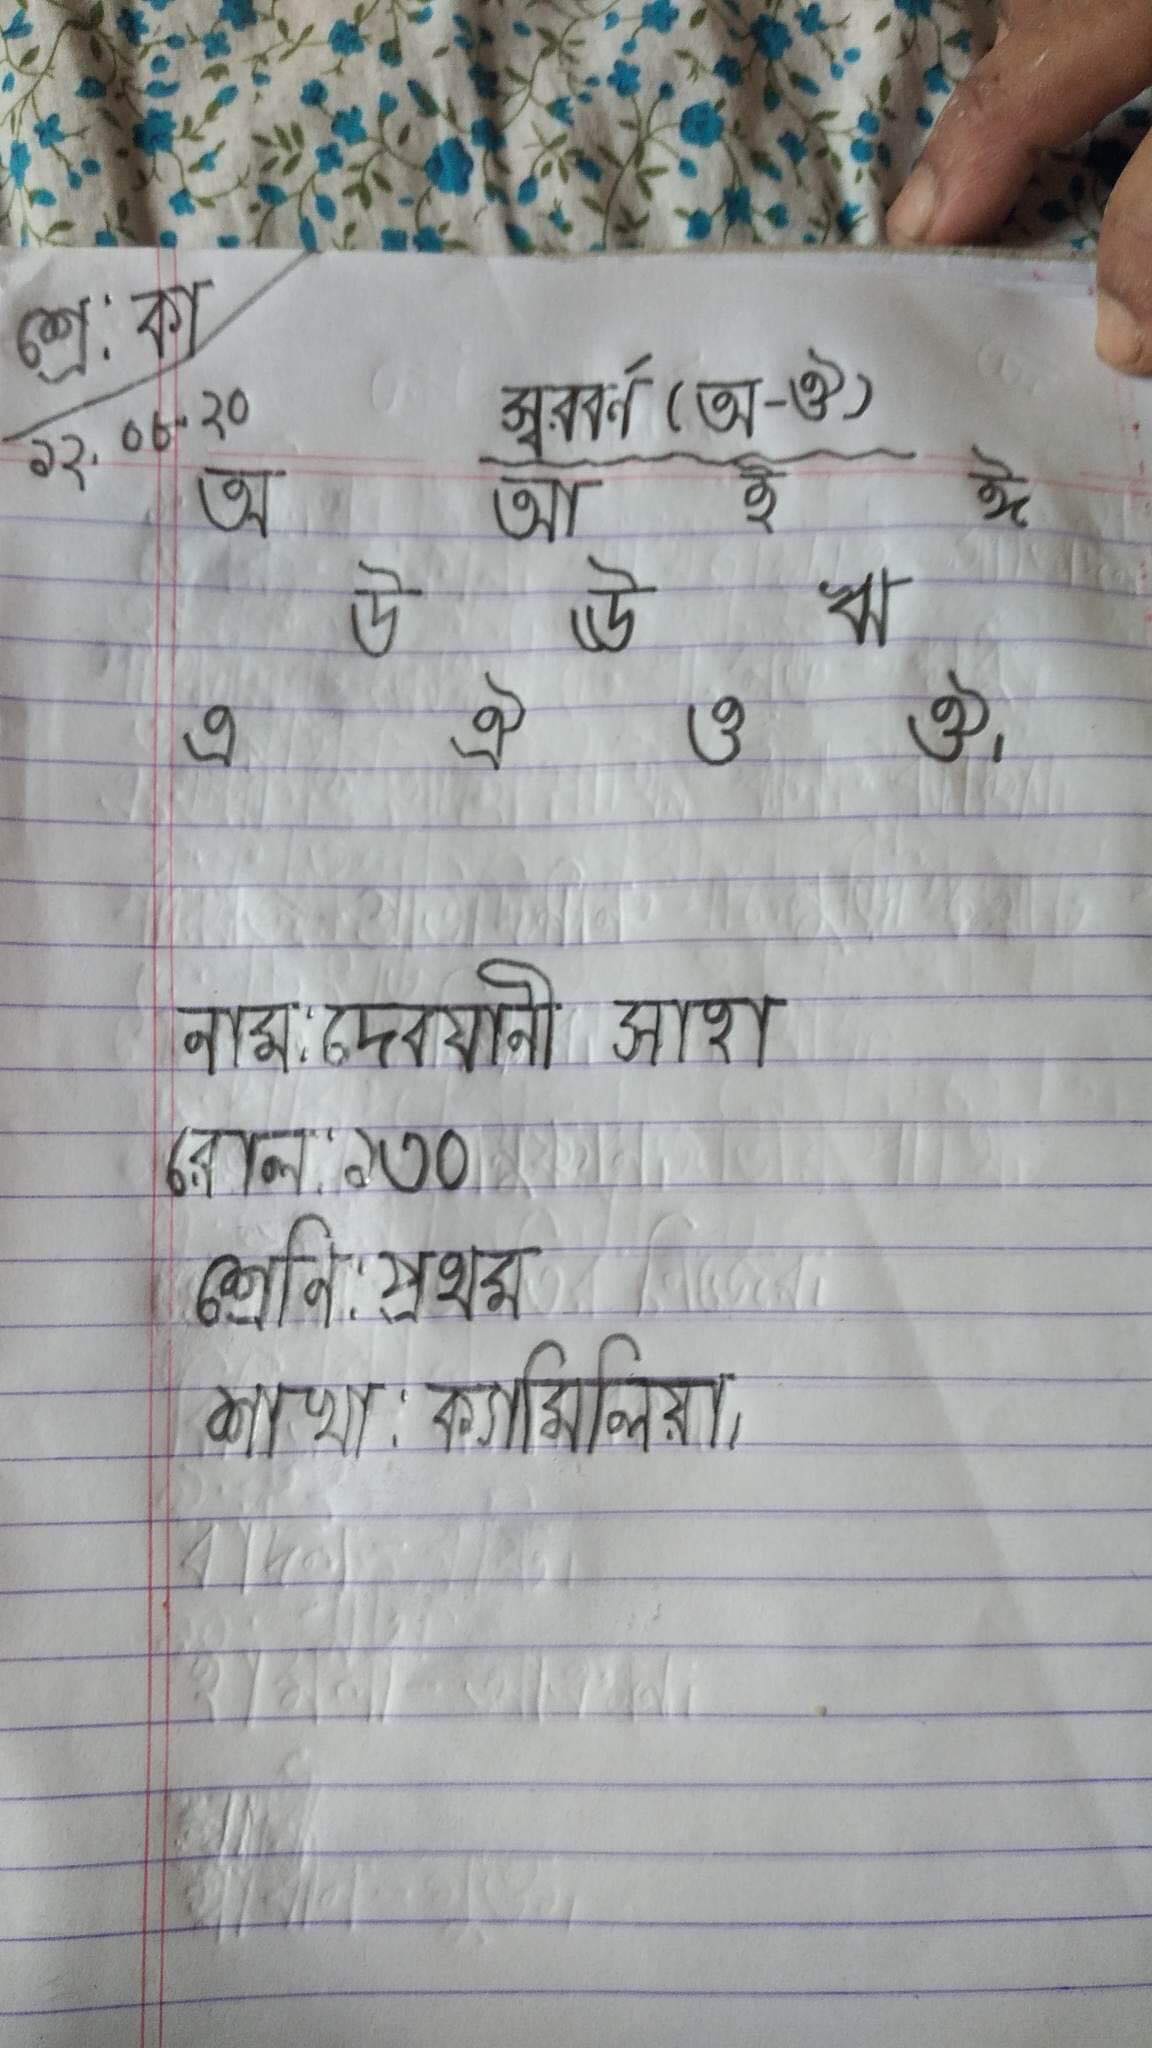 শ্রে: কা
২২. ০৮. ২০
স্বরবর্ন (অ-ঔ)
অ আ ই ঈ
উ ঊ ঋ
এ ঐ ও ঔ।
নাম: দেবযানী সাহা
রোল: ১৩০
শ্রেনি: প্রথম
শাখা: ক্যামিলিয়া।